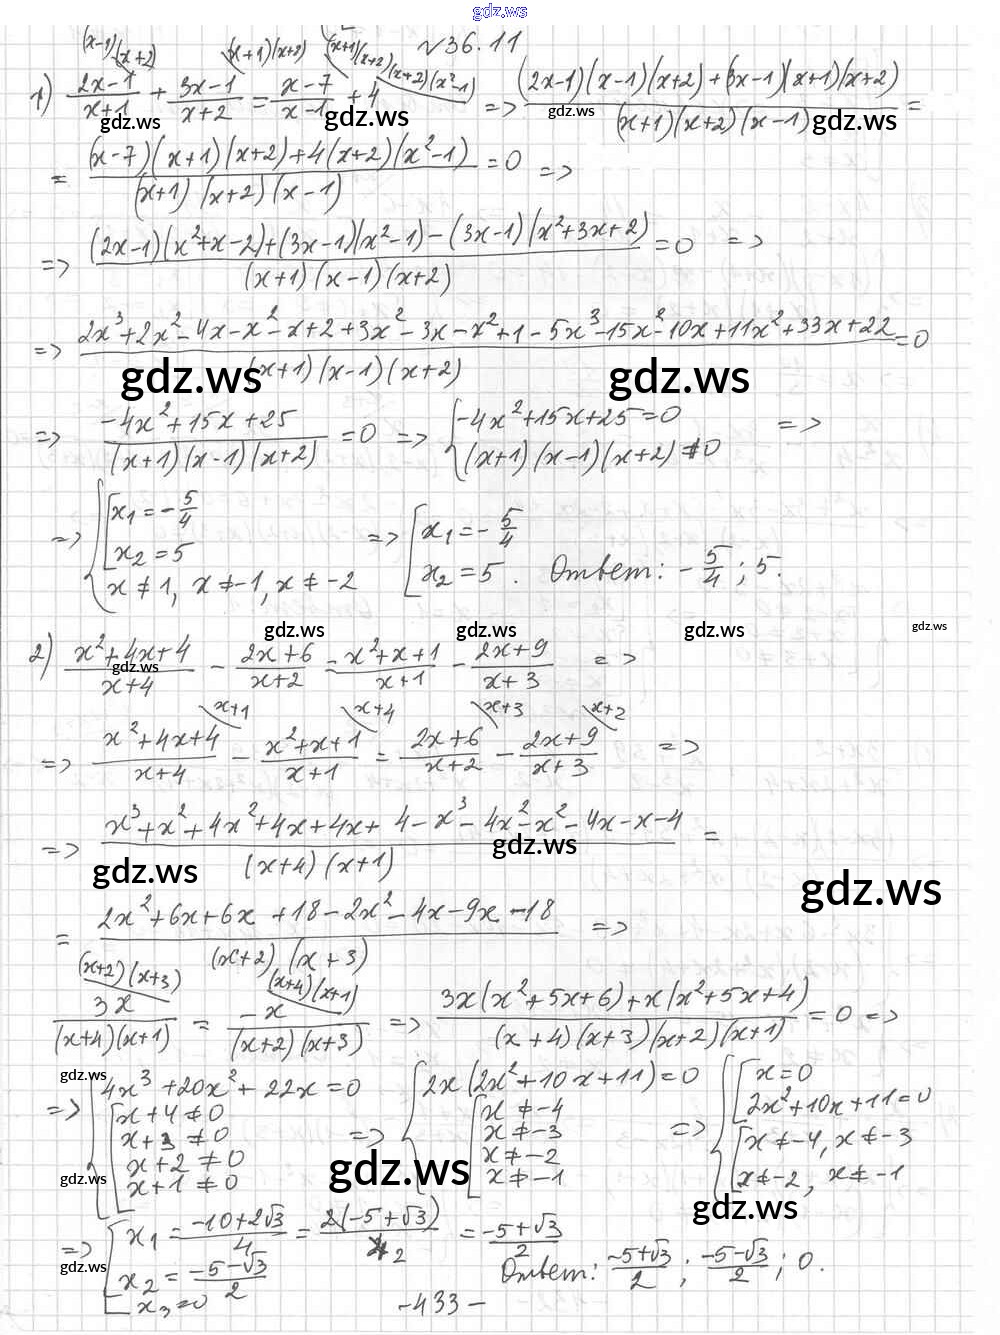 gdz.ws
№36.11
(x-1)(x+2) (x+1)(x+2) (x+1)(x+2) (x+2)(x²-1)
1) (2x-1)/(x+1) + (3x-1)/(x+2) = (x-7)/(x-1) + 4 => ((2x-1)(x-1)(x+2)+(3x-1)(x+1)(x+2))/((x+1)(x+2)(x-1)) =
gdz.ws gdz.ws gdz.ws gdz.ws
= ((x-7)(x+1)(x+2)+4(x+2)(x²-1))/((x+1)(x+2)(x-1)) = 0 =>
=> ((2x-1)(x²+x-2)+(3x-1)(x²-1)-(3x-1)(x²+3x+2))/((x+1)(x-1)(x+2)) = 0 =>
=> (2x³+2x²-4x-x²-x+2+3x²-3x-x²+1-5x³-15x²-10x+11x²+33x+22)/((x+1)(x-1)(x+2)) = 0
gdz.ws gdz.ws
=> (-4x²+15x+25)/((x+1)(x-1)(x+2)) = 0 => { -4x²+15x+25=0 =>
(x+1)(x-1)(x+2)≠0
=> { [ x₁ = -5/4 => [ x₁ = -5/4
x₂ = 5 x₂ = 5. Ответ: -5/4; 5.
x≠1, x≠-1, x≠-2
gdz.ws gdz.ws gdz.ws gdz.ws
2) (x²+4x+4)/(x+4) - (2x+6)/(x+2) = (x²+x+1)/(x+1) - (2x+9)/(x+3) =>
gdz.ws
x+1 x+4 x+3 x+2
=> (x²+4x+4)/(x+4) - (x²+x+1)/(x+1) = (2x+6)/(x+2) - (2x+9)/(x+3) =>
=> (x³+x²+4x²+4x+4x+4-x³-4x²-x²-4x-x-4)/((x+4)(x+1)) =
gdz.ws gdz.ws gdz.ws
= (2x²+6x+6x+18-2x²-4x-9x-18)/((x+2)(x+3)) =>
(x+2)(x+3) (x+4)(x+1)
3x/((x+4)(x+1)) = -x/((x+2)(x+3)) => (3x(x²+5x+6)+x(x²+5x+4))/((x+4)(x+3)(x+2)(x+1)) = 0 =>
gdz.ws
=> { 4x³+20x²+22x=0 => { 2x(2x²+10x+11)=0 => { [ x=0
[ x+4≠0 [ x≠-4 2x²+10x+11=0
x+3≠0 x≠-3 [ x≠-4, x≠-3
x+2≠0 x≠-2 x≠-2, x≠-1
x+1≠0 x≠-1
gdz.ws gdz.ws gdz.ws
=> [ x₁ = (-10+2√3)/4 = 2(-5+√3)/4 2 = (-5+√3)/2
gdz.ws
x₂ = (-5-√3)/2 Ответ: (-5+√3)/2; (-5-√3)/2; 0.
x₃=0
-433-